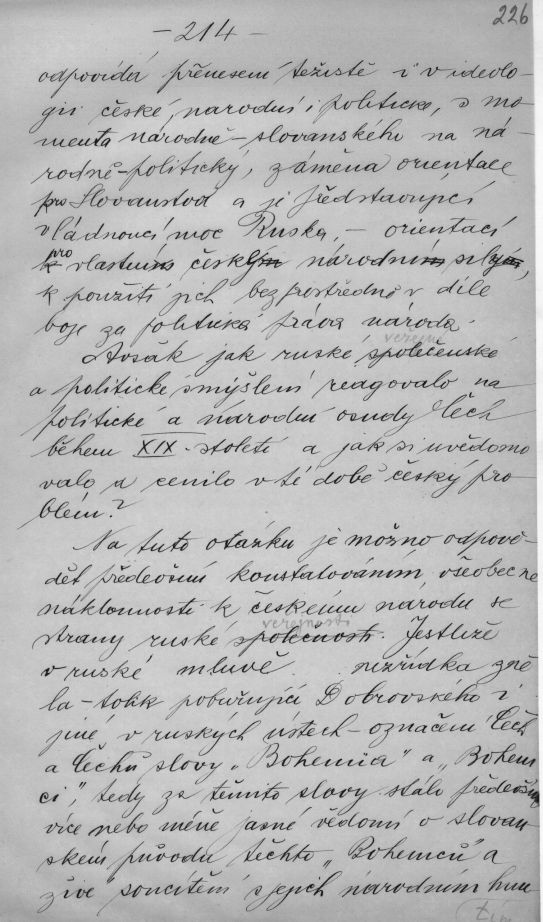 226
- 214 -
odpovídá přenesení těžiště i v ideolo-
gii české, národní i politické, s mo-
menta národně-slovanského na ná-
rodně-politický, záměna orientace
pro Slovanstvo a je představující
vládnoucí moc Ruska, - orientací
pro vlastním českým národním silám,
k použití jich bezprostředně v díle
boje za politická práva národa.
veřejné
Avšak jak ruské společenské
a politické smýšlení reagovalo na
politické a národní osudy Čech
během XIX. století a jak si uvědomo
valo a cenilo v té době český pro
blém?
Na tuto otázku je možno odpově-
dět především konstatováním všeobecné
náklonnosti k českému národu se
veřejnosti
strany ruské společnosti. Jestliže
v ruské mluvě nezřídka zně
la - tolik pobuřující Dobrovského i
jiné, v ruských ústech - označení Čech
a Čechů slovy „Bohemia" a „Bohem
ci", tedy za těmito slovy stálo především
více nebo méně jasné vědomí o slovan
ském původu těchto „Bohemců" a
živé soucítění s jejich národním hnu
tím